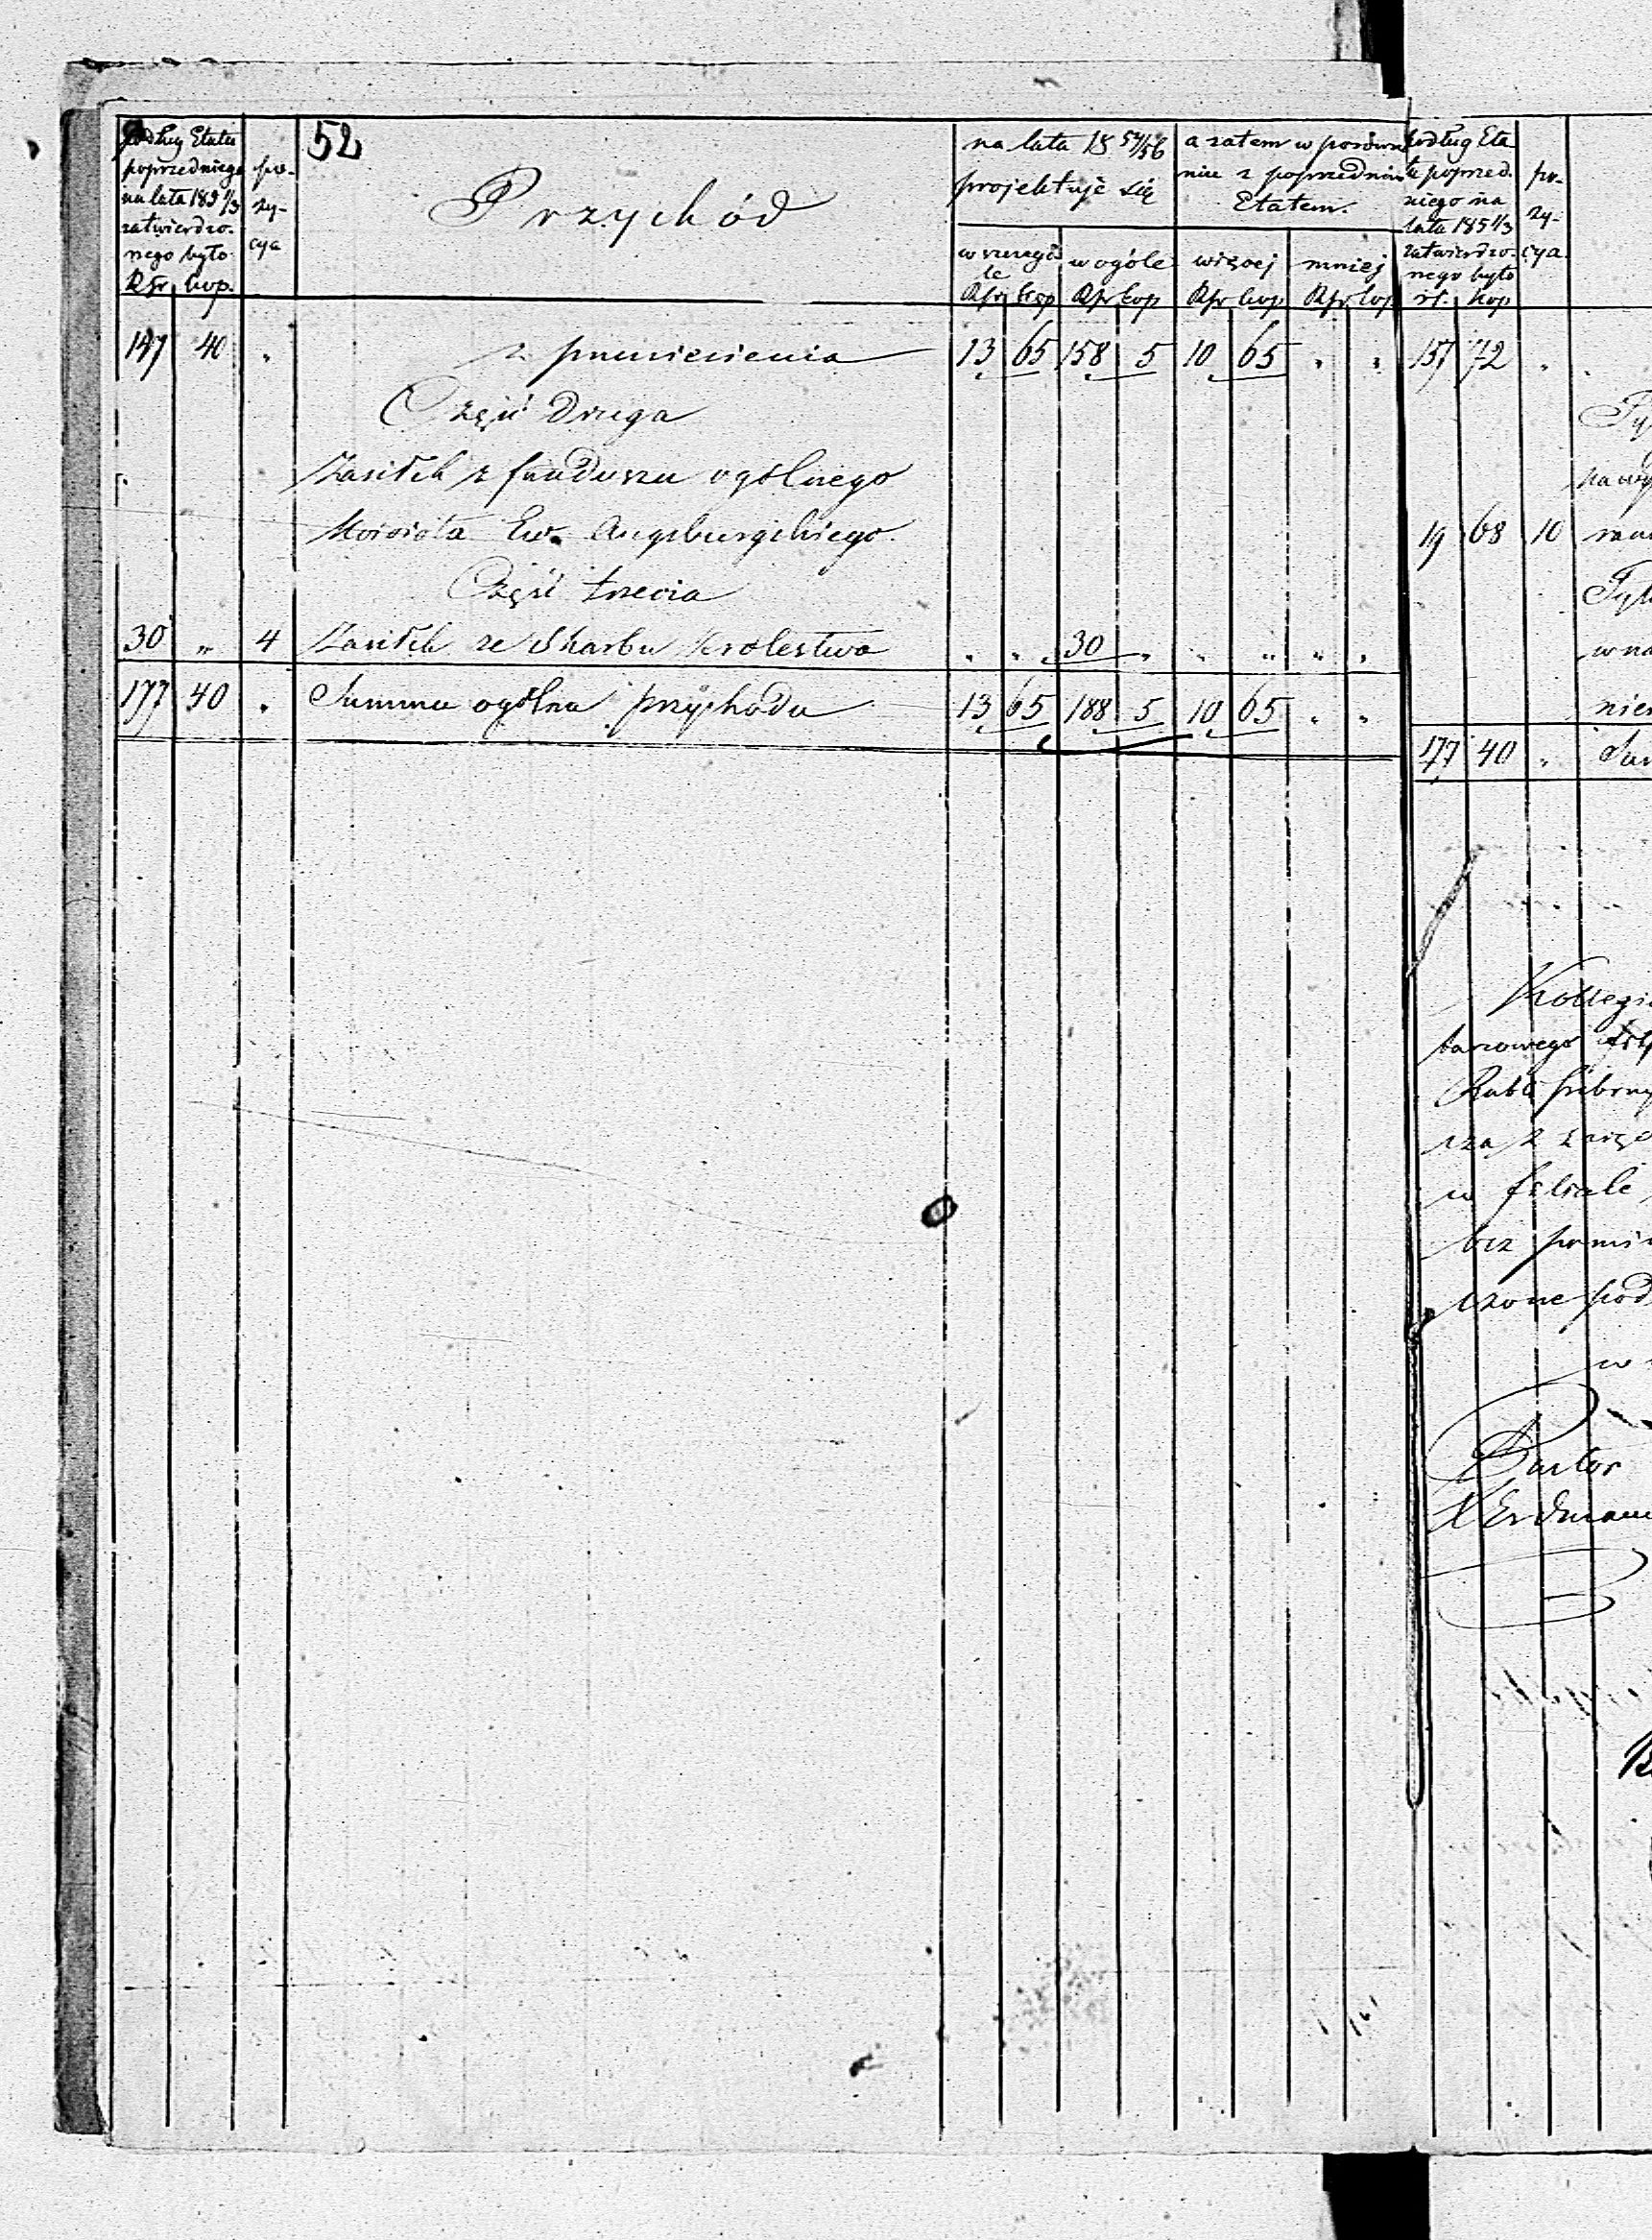 52
podług Etatu
poprzedniego
na lata 185 1/3
zatwierdzo-
nego było
Rsr kop.
po-
zy-
cya
Przychód
na lata 18 54/56
projektuje się
w szczegó
le
Rsr kop
w ogóle
Rsr kop
a zatem w porówna
niu z poprzednim
Etatem.
więcej
Rsr kop
mniej
Rsr kop
147 40 „ z przeniesienia 13 65 158 5 10 65 „ „
Część Druga
Zasiłek z funduszu ogólnego
Kościoła Ew. Augsburgskiego.
Część trzecia
30 „ 4 Zasiłek ze Skarbu Królestwa „ „ 30 „ „ „ „ „
177 40 „ Summa ogólna przychodu 13 65 188 5 10 65 „ „
podług Eta
tu poprzed.
niego na
lata 185 1/3
zatwierdzo-
nego było
rs. kop
po-
zy-
cya
157 72 „
19 68 10
w na
177 40 „ Sum
Kollegi
Rubli srebrny
w filiale
bez
czone pod
w
Pastor
Erdman